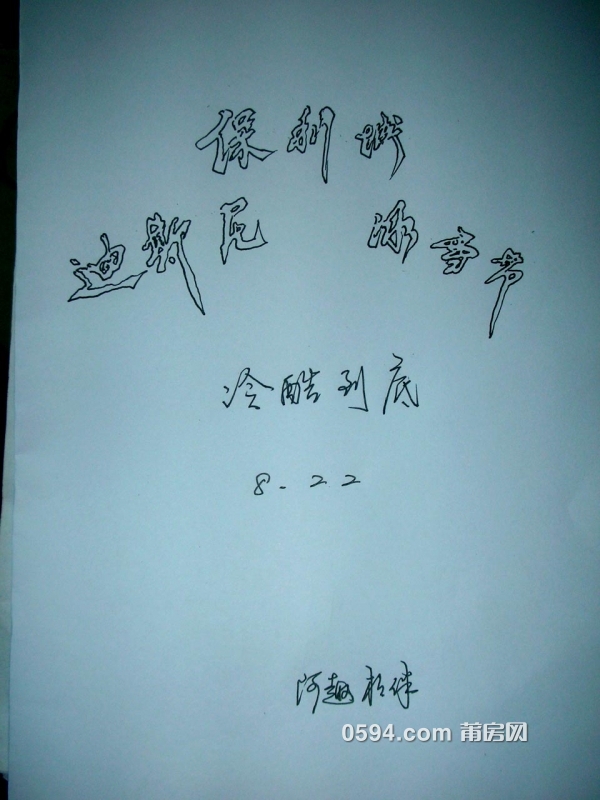 保利城
迪斯尼 冰雪节
冷酷到底
8.22
阿趣相伴
0594.com 莆房网